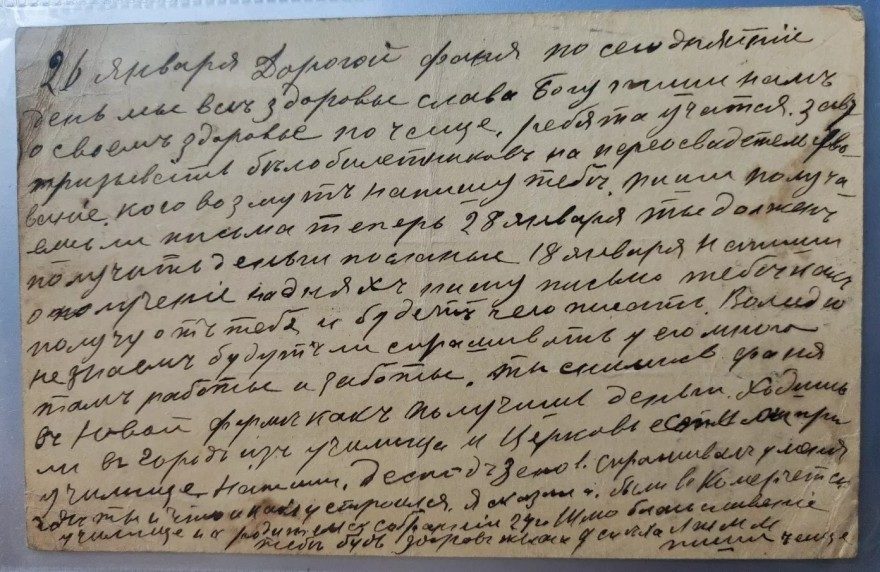 26 января Дорогой фаня по сегодняшніе
день мы всъ здоровые слава Богу пиши намъ
о своемъ здоровье почеще, ребята учатся. завт
призывъ былобилетниковъ на переосвидетельство
вание. кого возмутъ напишу тебъ. пиши получа
ешь ли письма теперь 28 января ты долженъ
получить деньги посланые 18 января напиши
о получение на дняхъ пишу письмо тебъ
получу отъ тебя и будетъ чего писать. Володю
не знаемъ будутъ ли спрашивать у его много
тамъ работы и заботы, ты снимись фаня
въ новой формъ какъ получишь деньги. Ходишь
ли въ городъ изъ училища и Церковь есть ли при
училище Напиши. спрашивалъ у меня
гдъ ты и что и какъ устроился. Я сказалъ. были въ Комерческ
училище на родителскъ собраніи благословение
тебъ будь здоровъ пиши чеще